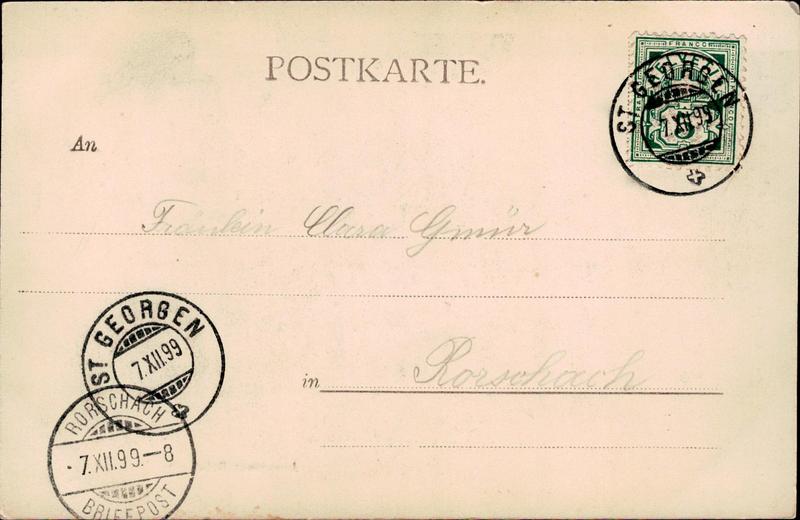 POSTKARTE.
FRANCO
ST GEORGEN
7.XII.99
5
An
Fräulein Clara Gmür
ST GEORGEN
7.XII.99
in Rorschach
RORSCHACH
7.XII.99.–8
BRIEFPOST